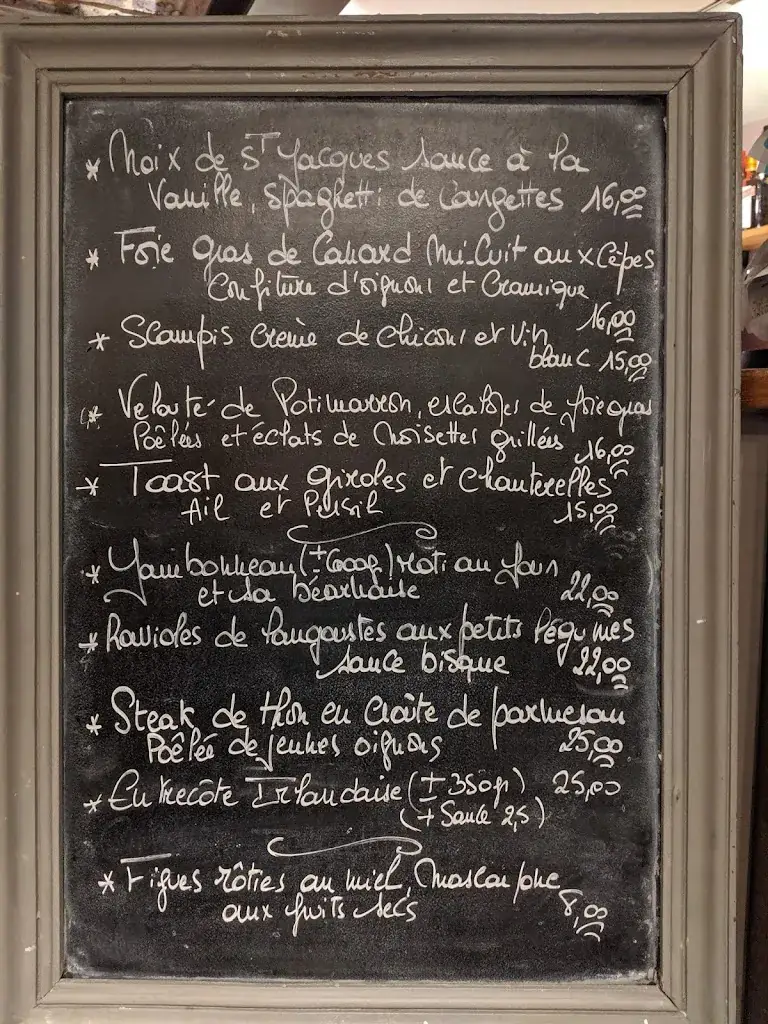 * Noix de ST Jacques sauce à la
Vanille, spaghetti de Courgettes 16,00
* Foie gras de Canard Mi-Cuit aux Cêpes
Confiture d'oignons et Cramique
16,00
* Scampis crème de chicons et Vin
blanc 15,00
* Velouté de Potimarron, escalopes de foie gras
Poêlées et éclats de Noisettes grillées
16,00
* Toast aux giroles et chanterelles
Ail et Persil 15,00
* Jambonneau (±600gr) rôti au four
et sa béarnaise 22,00
* Ravioles de langoustes aux petits légumes
sauce bisque 22,00
* Steak de thon en croûte de parmesan
Poêlée de jeunes oignons 25,00
* Entrecôte Irlandaise (± 350gr) 25,00
(+ Sauce 2,5)
* Figues rôties au miel, Mascarpone
aux fruits secs 8,00